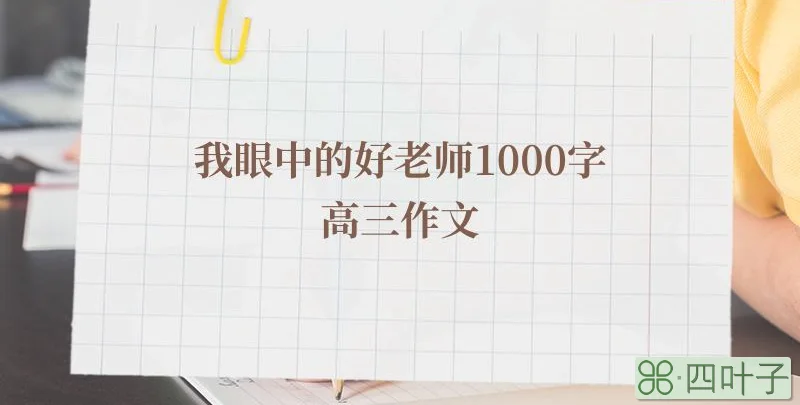 我眼中的好老师1000字
高三作文
⌘·四叶子